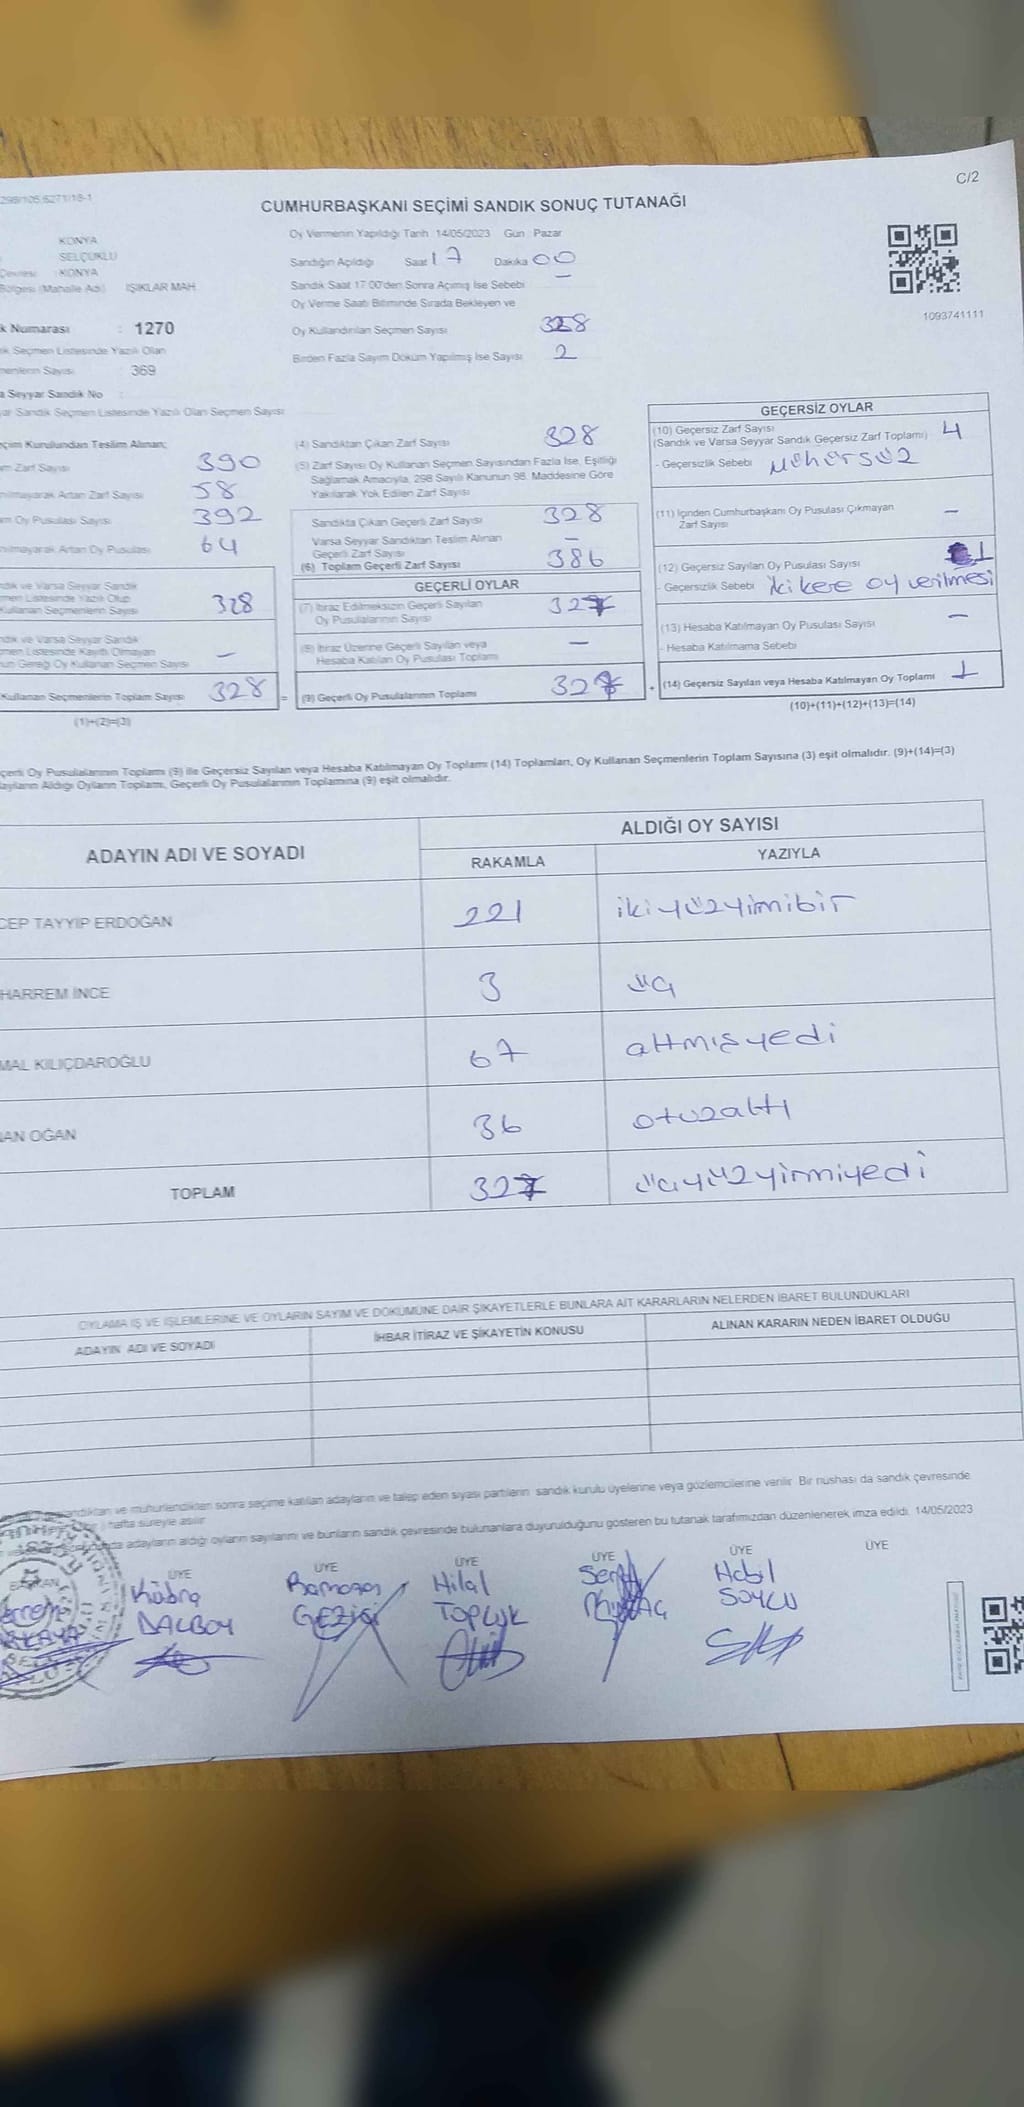 298/105.6271/18-1
C/2
CUMHURBAŞKANI SEÇİMİ SANDIK SONUÇ TUTANAĞI
KONYA
SELÇUKLU
Çevresi : KONYA
Bölgesi (Mahalle Adı) IŞIKLAR MAH.
k Numarası : 1270
k Seçmen Listesinde Yazılı Olan
menlerin Sayısı 369
a Seyyar Sandık No
yar Sandık Seçmen Listesinde Yazılı Olan Seçmen Sayısı
Oy Vermenin Yapıldığı Tarih 14/05/2023 Gün Pazar
Sandığın Açıldığı Saat 17 Dakika 00
Sandık Saat 17.00'den Sonra Açılmış İse Sebebi —
Oy Verme Saati Bitiminde Sırada Bekleyen ve
Oy Kullandırılan Seçmen Sayısı 328
Birden Fazla Sayım Döküm Yapılmış İse Sayısı 2
1093741111
çim Kurulundan Teslim Alınan;
m Zarf Sayısı 390
nılmayarak Artan Zarf Sayısı 58
m Oy Pusulası Sayısı 392
nılmayarak Artan Oy Pusulası 64
ndık ve Varsa Seyyar Sandık
men Listesinde Yazılı Olup
Kullanan Seçmenlerin Sayısı 328
ndık ve Varsa Seyyar Sandık
men Listesinde Kayıtlı Olmayan
un Gereği Oy Kullanan Seçmen Sayısı —
Kullanan Seçmenlerin Toplam Sayısı 328 =
(1)+(2)=(3)
(4) Sandıktan Çıkan Zarf Sayısı 328
(5) Zarf Sayısı Oy Kullanan Seçmen Sayısından Fazla İse, Eşitliği
Sağlamak Amacıyla, 298 Sayılı Kanunun 98. Maddesine Göre
Yakılarak Yok Edilen Zarf Sayısı
Sandıkta Çıkan Geçerli Zarf Sayısı 328
Varsa Seyyar Sandıktan Teslim Alınan
Geçerli Zarf Sayısı —
(6) Toplam Geçerli Zarf Sayısı 386
GEÇERLİ OYLAR
(7) İtiraz Edilmeksizin Geçerli Sayılan
Oy Pusulalarının Sayısı 327
(8) İtiraz Üzerine Geçerli Sayılan veya
Hesaba Katılan Oy Pusulası Toplamı —
(9) Geçerli Oy Pusulalarının Toplamı 327 +
GEÇERSİZ OYLAR
(10) Geçersiz Zarf Sayısı
(Sandık ve Varsa Seyyar Sandık Geçersiz Zarf Toplamı) 4
- Geçersizlik Sebebi mühürsüz
(11) İçinden Cumhurbaşkanı Oy Pusulası Çıkmayan
Zarf Sayısı —
(12) Geçersiz Sayılan Oy Pusulası Sayısı 1
- Geçersizlik Sebebi iki kere oy verilmesi
(13) Hesaba Katılmayan Oy Pusulası Sayısı —
- Hesaba Katılmama Sebebi
(14) Geçersiz Sayılan veya Hesaba Katılmayan Oy Toplamı 1
(10)+(11)+(12)+(13)=(14)
çerli Oy Pusulalarının Toplamı (9) ile Geçersiz Sayılan veya Hesaba Katılmayan Oy Toplamı (14) Toplamları, Oy Kullanan Seçmenlerin Toplam Sayısına (3) eşit olmalıdır. (9)+(14)=(3)
ayların Aldığı Oyların Toplamı, Geçerli Oy Pusulalarının Toplamına (9) eşit olmalıdır.
ADAYIN ADI VE SOYADI ALDIĞI OY SAYISI
RAKAMLA YAZIYLA
CEP TAYYİP ERDOĞAN 221 ikiyüzyirmibir
HARREM İNCE 3 üç
MAL KILIÇDAROĞLU 67 altmışyedi
NAN OĞAN 36 otuzaltı
TOPLAM 327 üçyüzyirmiyedi
OYLAMA İŞ VE İŞLEMLERİNE VE OYLARIN SAYIM VE DÖKÜMÜNE DAİR ŞİKAYETLERLE BUNLARA AİT KARARLARIN NELERDEN İBARET BULUNDUKLARI
ADAYIN ADI VE SOYADI İHBAR İTİRAZ VE ŞİKAYETİN KONUSU ALINAN KARARIN NEDEN İBARET OLDUĞU
ve mühürlendikten sonra seçime katılan adayların ve talep eden siyasi partilerin sandık kurulu üyelerine veya gözlemcilerine verilir. Bir nüshası da sandık çevresinde
hafta süreyle asılır.
adayların aldığı oyların sayılarını ve bunların sandık çevresinde bulunanlara duyurulduğunu gösteren bu tutanak tarafımızdan düzenlenerek imza edildi. 14/05/2023
BAŞKAN ÜYE ÜYE ÜYE ÜYE ÜYE ÜYE
Kübra Ramazan Hilal Habil
DALBOY GEZİCİ TOPLUK SOYLU